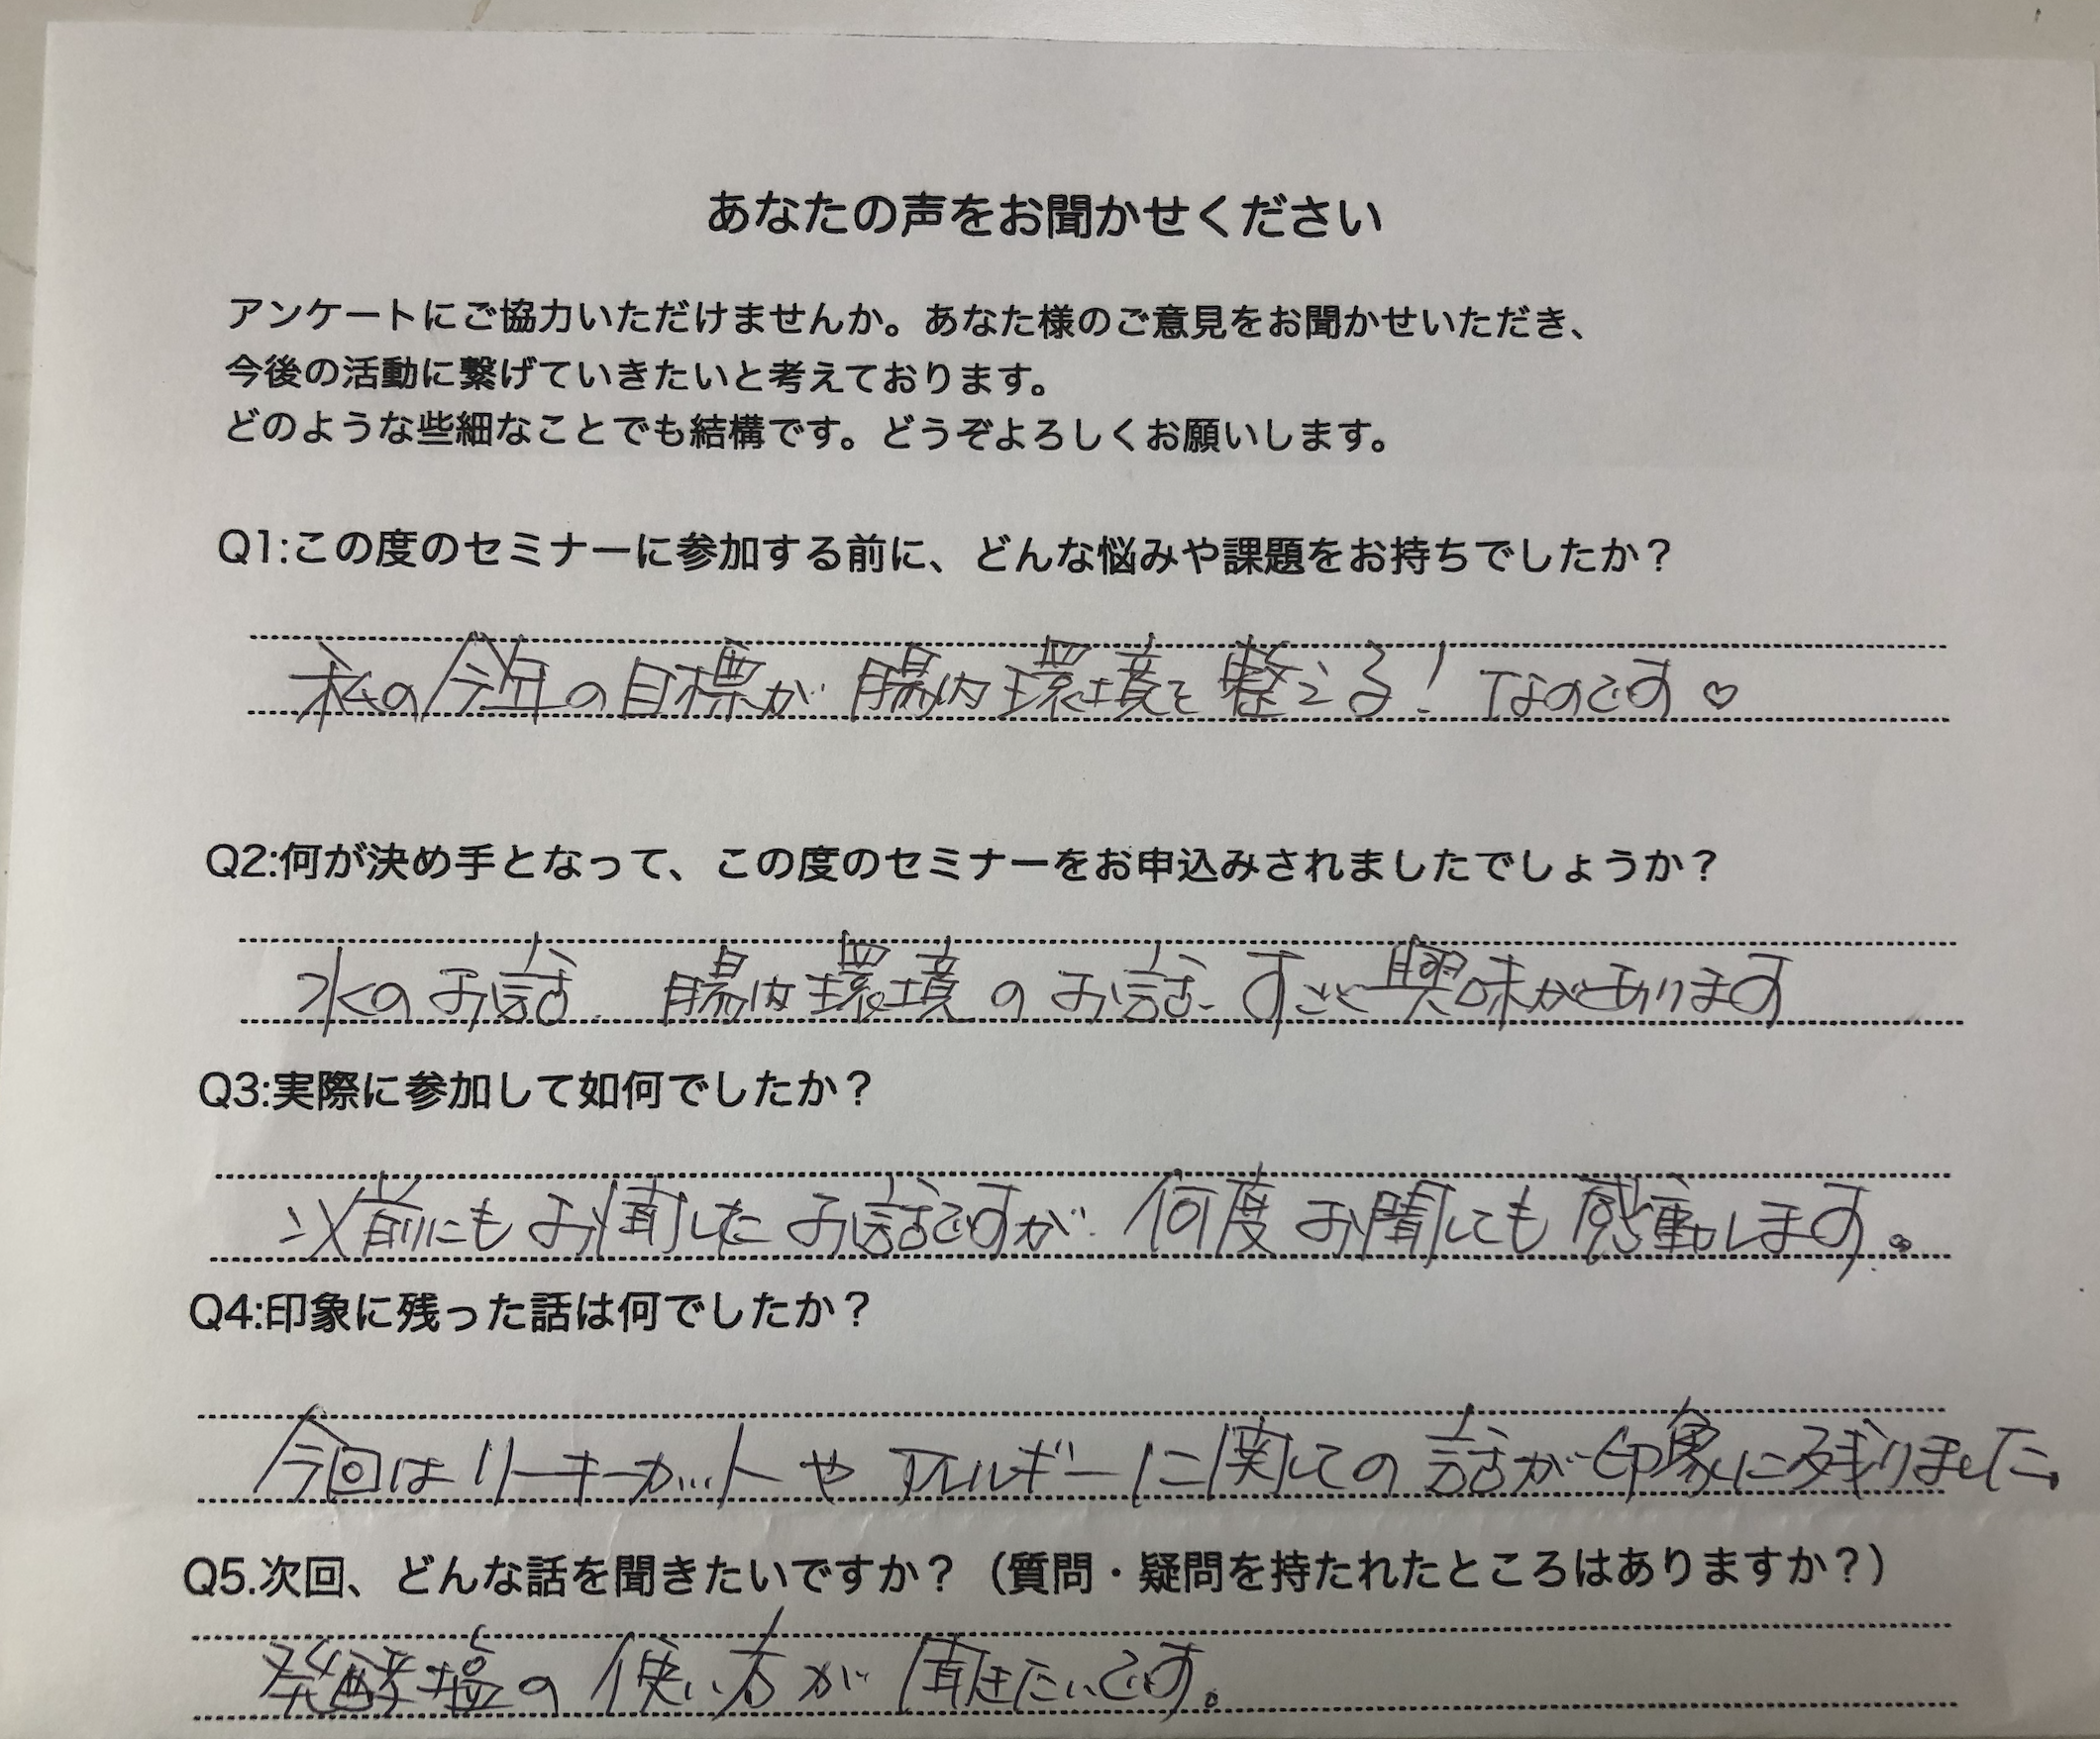 あなたの声をお聞かせください
アンケートにご協力いただけませんか。あなた様のご意見をお聞かせいただき、
今後の活動に繋げていきたいと考えております。
どのような些細なことでも結構です。どうぞよろしくお願いします。
Q1:この度のセミナーに参加する前に、どんな悩みや課題をお持ちでしたか？
私の今年の目標が 腸内環境を整える！なのです♡
Q2:何が決め手となって、この度のセミナーをお申込みされましたでしょうか？
水のお話、腸内環境のお話、すごく興味があります
Q3:実際に参加して如何でしたか？
以前にもお聞したお話ですが、何度お聞しても感動します。
Q4:印象に残った話は何でしたか？
今回はリーキーガットやアレルギーに関しての話が印象に残りました。
Q5.次回、どんな話を聞きたいですか？（質問・疑問を持たれたところはありますか？）
発酵塩の使い方が聞きたいです。